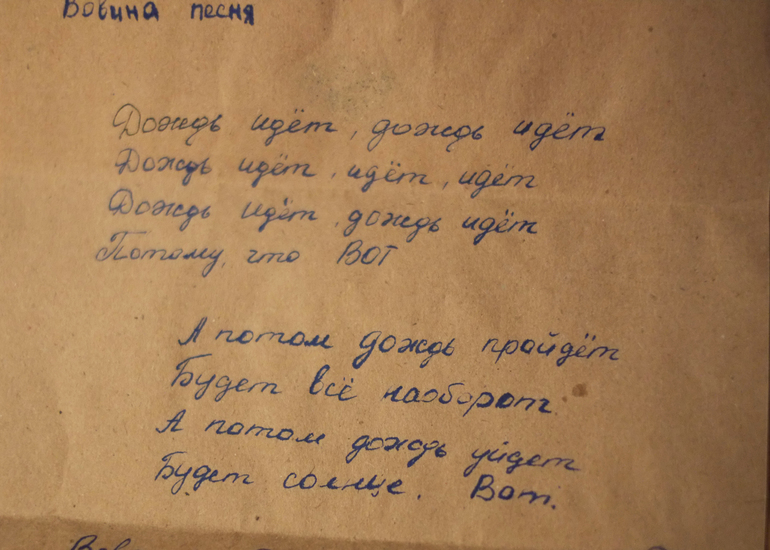 Вовина песня
Дождь идёт, дождь идёт
Дождь идёт, идёт, идёт
Дождь идёт, дождь идёт
Потому, что ВОТ
А потом дождь пройдёт
Будет всё наоборот.
А потом дождь уйдет
Будет солнце. Вот.